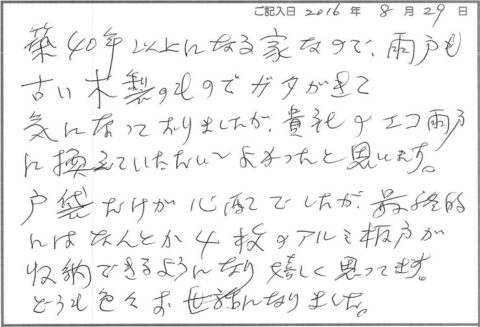 ご記入日 2016 年 8 月 29 日
築40年以上になる家なので、雨戸も
古い木製のものでガタが来て
気になっておりましたが、貴社のエコ雨戸
に換えていただいてよかったと思います。
戸袋だけが心配でしたが、最終的
にはなんとか4枚のアルミ板戸が
収納できるようになり嬉しく思ってます。
どうも色々お世話になりました。